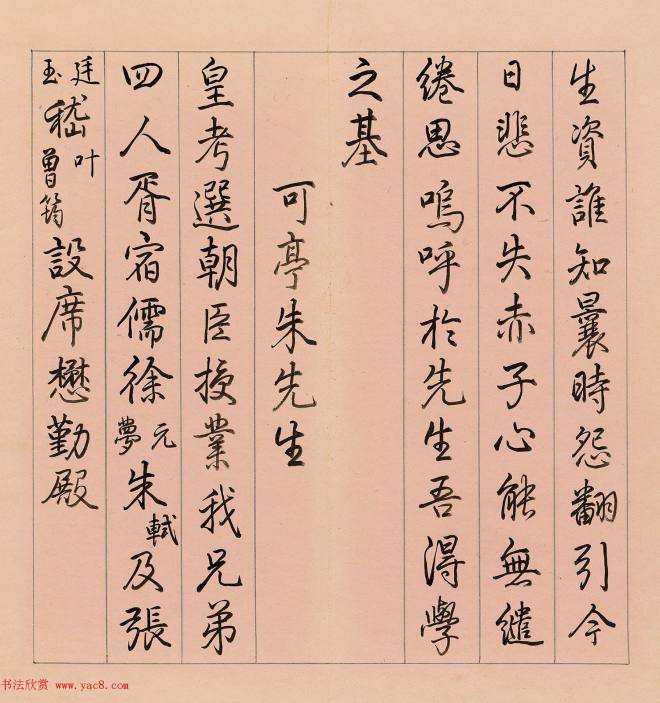 生資誰知曩時怨翻引今
日悲不失赤子心能無繾
綣思嗚呼於先生吾得學
之基
可亭朱先生
皇考選朝臣授業我兄弟
四人胥宿儒徐元夢朱軾及張
廷玉嵇叶曾筠設席懋勤殿
书法欣赏 www.yac8.com